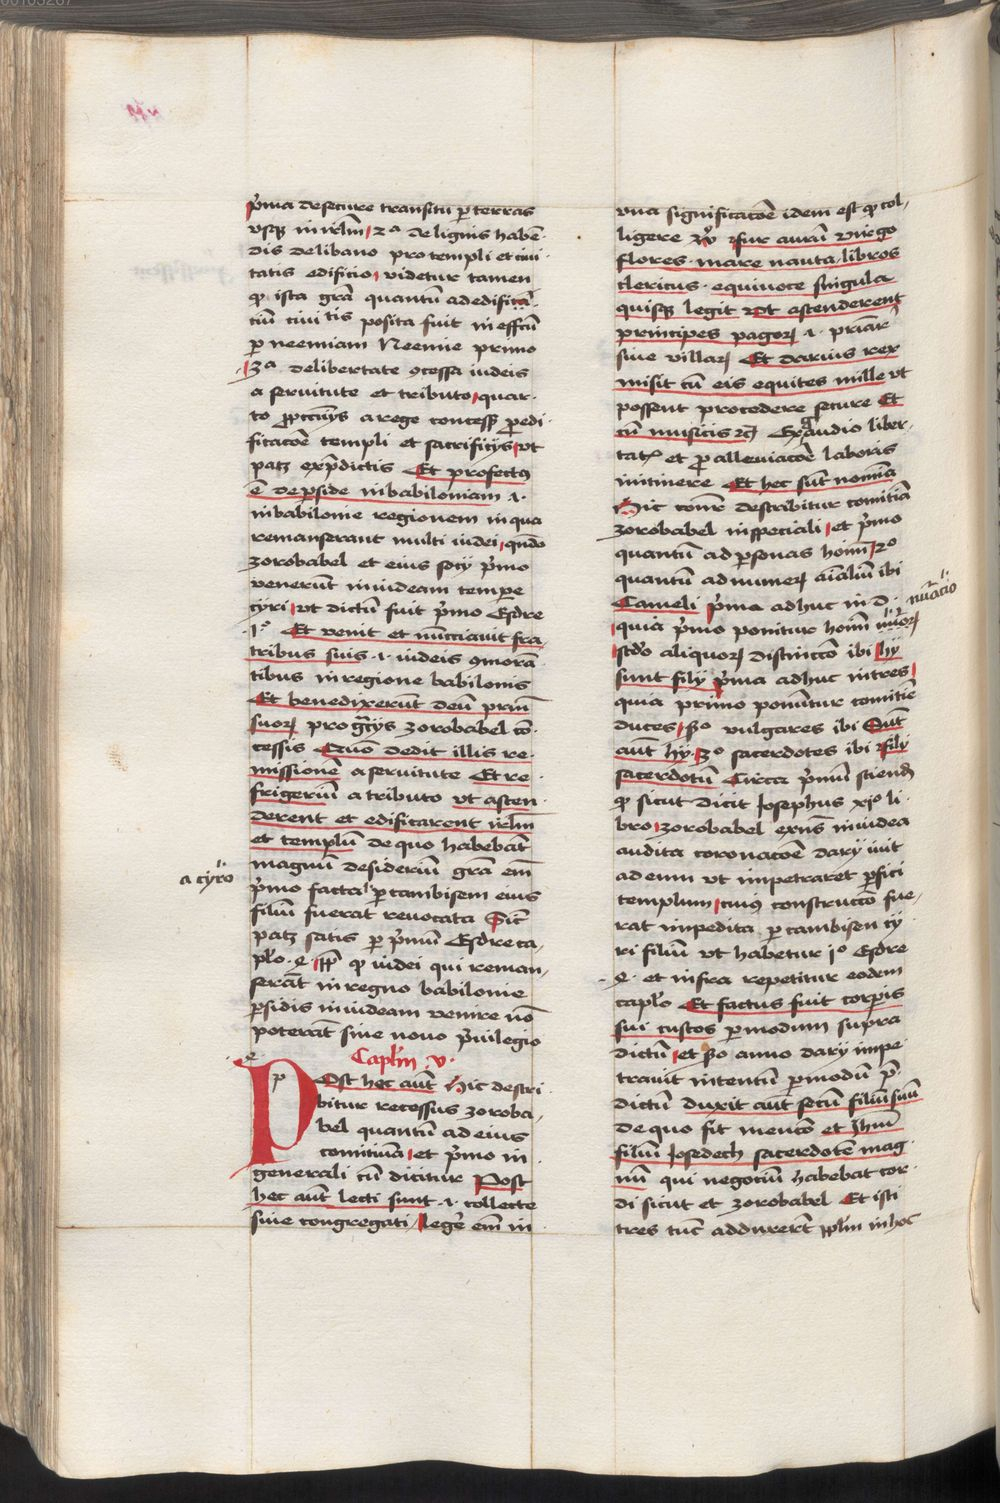 p̄ma de secure transitu p̱ terras
vsq̄ in irl̄m / 2ᵃ de lignis haben
dis de libano pro templi et ciui
tatis edificio / videtur tamen
ꝙ ista gr̄a quantū ad edifica
cōm ciuitatis posita fuit in effc̄m
p̱ neemiam Neemie primo
3ᵃ de libertate ꝯcessa iudeis
a seruitute et tributo / quar
to
ficacōe templi et sacrificijs / vt
patꝫ ex p̄dictis Et profectꝯ
ē de p̱side in babiloniam .i.
in babilonie regionem in qua
remanserant multi iudei / qn̄do
zorobabel et eius socij p̄mo
venerūt in iudeam tempe
cyri / vt dictū fuit p̄mo Esdre
.1.º Et venit et nūcciauit fra
tribus suis .i. iudeis ꝯmorā
tibus in regione babilonis
Et benedixerūt deū prīm
suoꝝ pro gr̄cijs zorobabel cō
cessis Quo dedit illis re
missionē a seruitute Et re
frigeriū a tributo vt ascen
derent et edificarent irl̄m
et templū de quo habebāt
magnū desideriū gr̄a em̄
a cyro
p̄mo facta p̱ cambisem eius
filiū fuerat reuocata Sic̄
patꝫ satis p̱ p̄mū Esdre ca
pl̄o .4. ꝙ iudei qui reman
serāt in regno babilonie
p̱sidis in iudeam venire nō
poterāt sine nouo p̄uilegio
Capl̄m v.
Post hec aut̄ Hic descri
bitur recessus zoroba
bel quantū ad eius
comitiuā / et p̄mo in
generali cū dicitur Post
hec aut̄ lecti sunt .i. collecte
siue congregati / legē em̄ in
vna significacōe idem est ꝙ col
ligere fur aurū virgo
flores . mare nauta / libros
clericus . equiuoce singula
quisqꝫ legit Vt ascenderent
principes pagoꝝ .i.
siue villaꝝ Et darius rex
misit cū eis equites mille vt
possent procedere secure Et
cū musicis ꝛc̄ gaudio liber
tatꝭ et p̱ alleuiacōe laboris
in itinere Et hec sūt nomīa
Hic describitur comitiā
zorobabel in speciali / et p̄mo
quantū ad p̱sonas hoīm / 2º
quantū ad numeꝝ aīaliū ibi
Cameli p̄ma adhuc in .2.
quia p̄mo ponitur hoīm
scd̄o aliquoꝝ distinccō ibi / hij
sunt filij p̄ma adhuc in tres /
quia primo ponūtur comitiē
duces / scd̄o vulgares ibi Sūt
aūt hij . 3º sacerdotes ibi filij
sacerdotū Circa p̄mū sciend̄
ꝙ sicut dicit Josephus xjº li
bro / zorobabel exn̄s in iudea
audita coronacōe darij iuit
ad eum vt impetraret p̱fici
templum / cuiꝯ construccō fue
rat impedita p̱ cambisen cy
ri filiū vt habetur 1º Esdre
.4. et infra repetitur eodem
caplo Et factus fuit corporis
sui custos p̱ modum supra
dictū / et scd̄o anno darij impe
trauit intentū p̱ modū p̄
dictū duxit aūt secū filiū suū
de quo fit mencō et Jhm̄
filiū Josedech sacerdotē mag
nū qui negotiū habebāt cor
di sicut et zorobabel Et isti
tres tūc adduxerūt pplm̄ in hoc